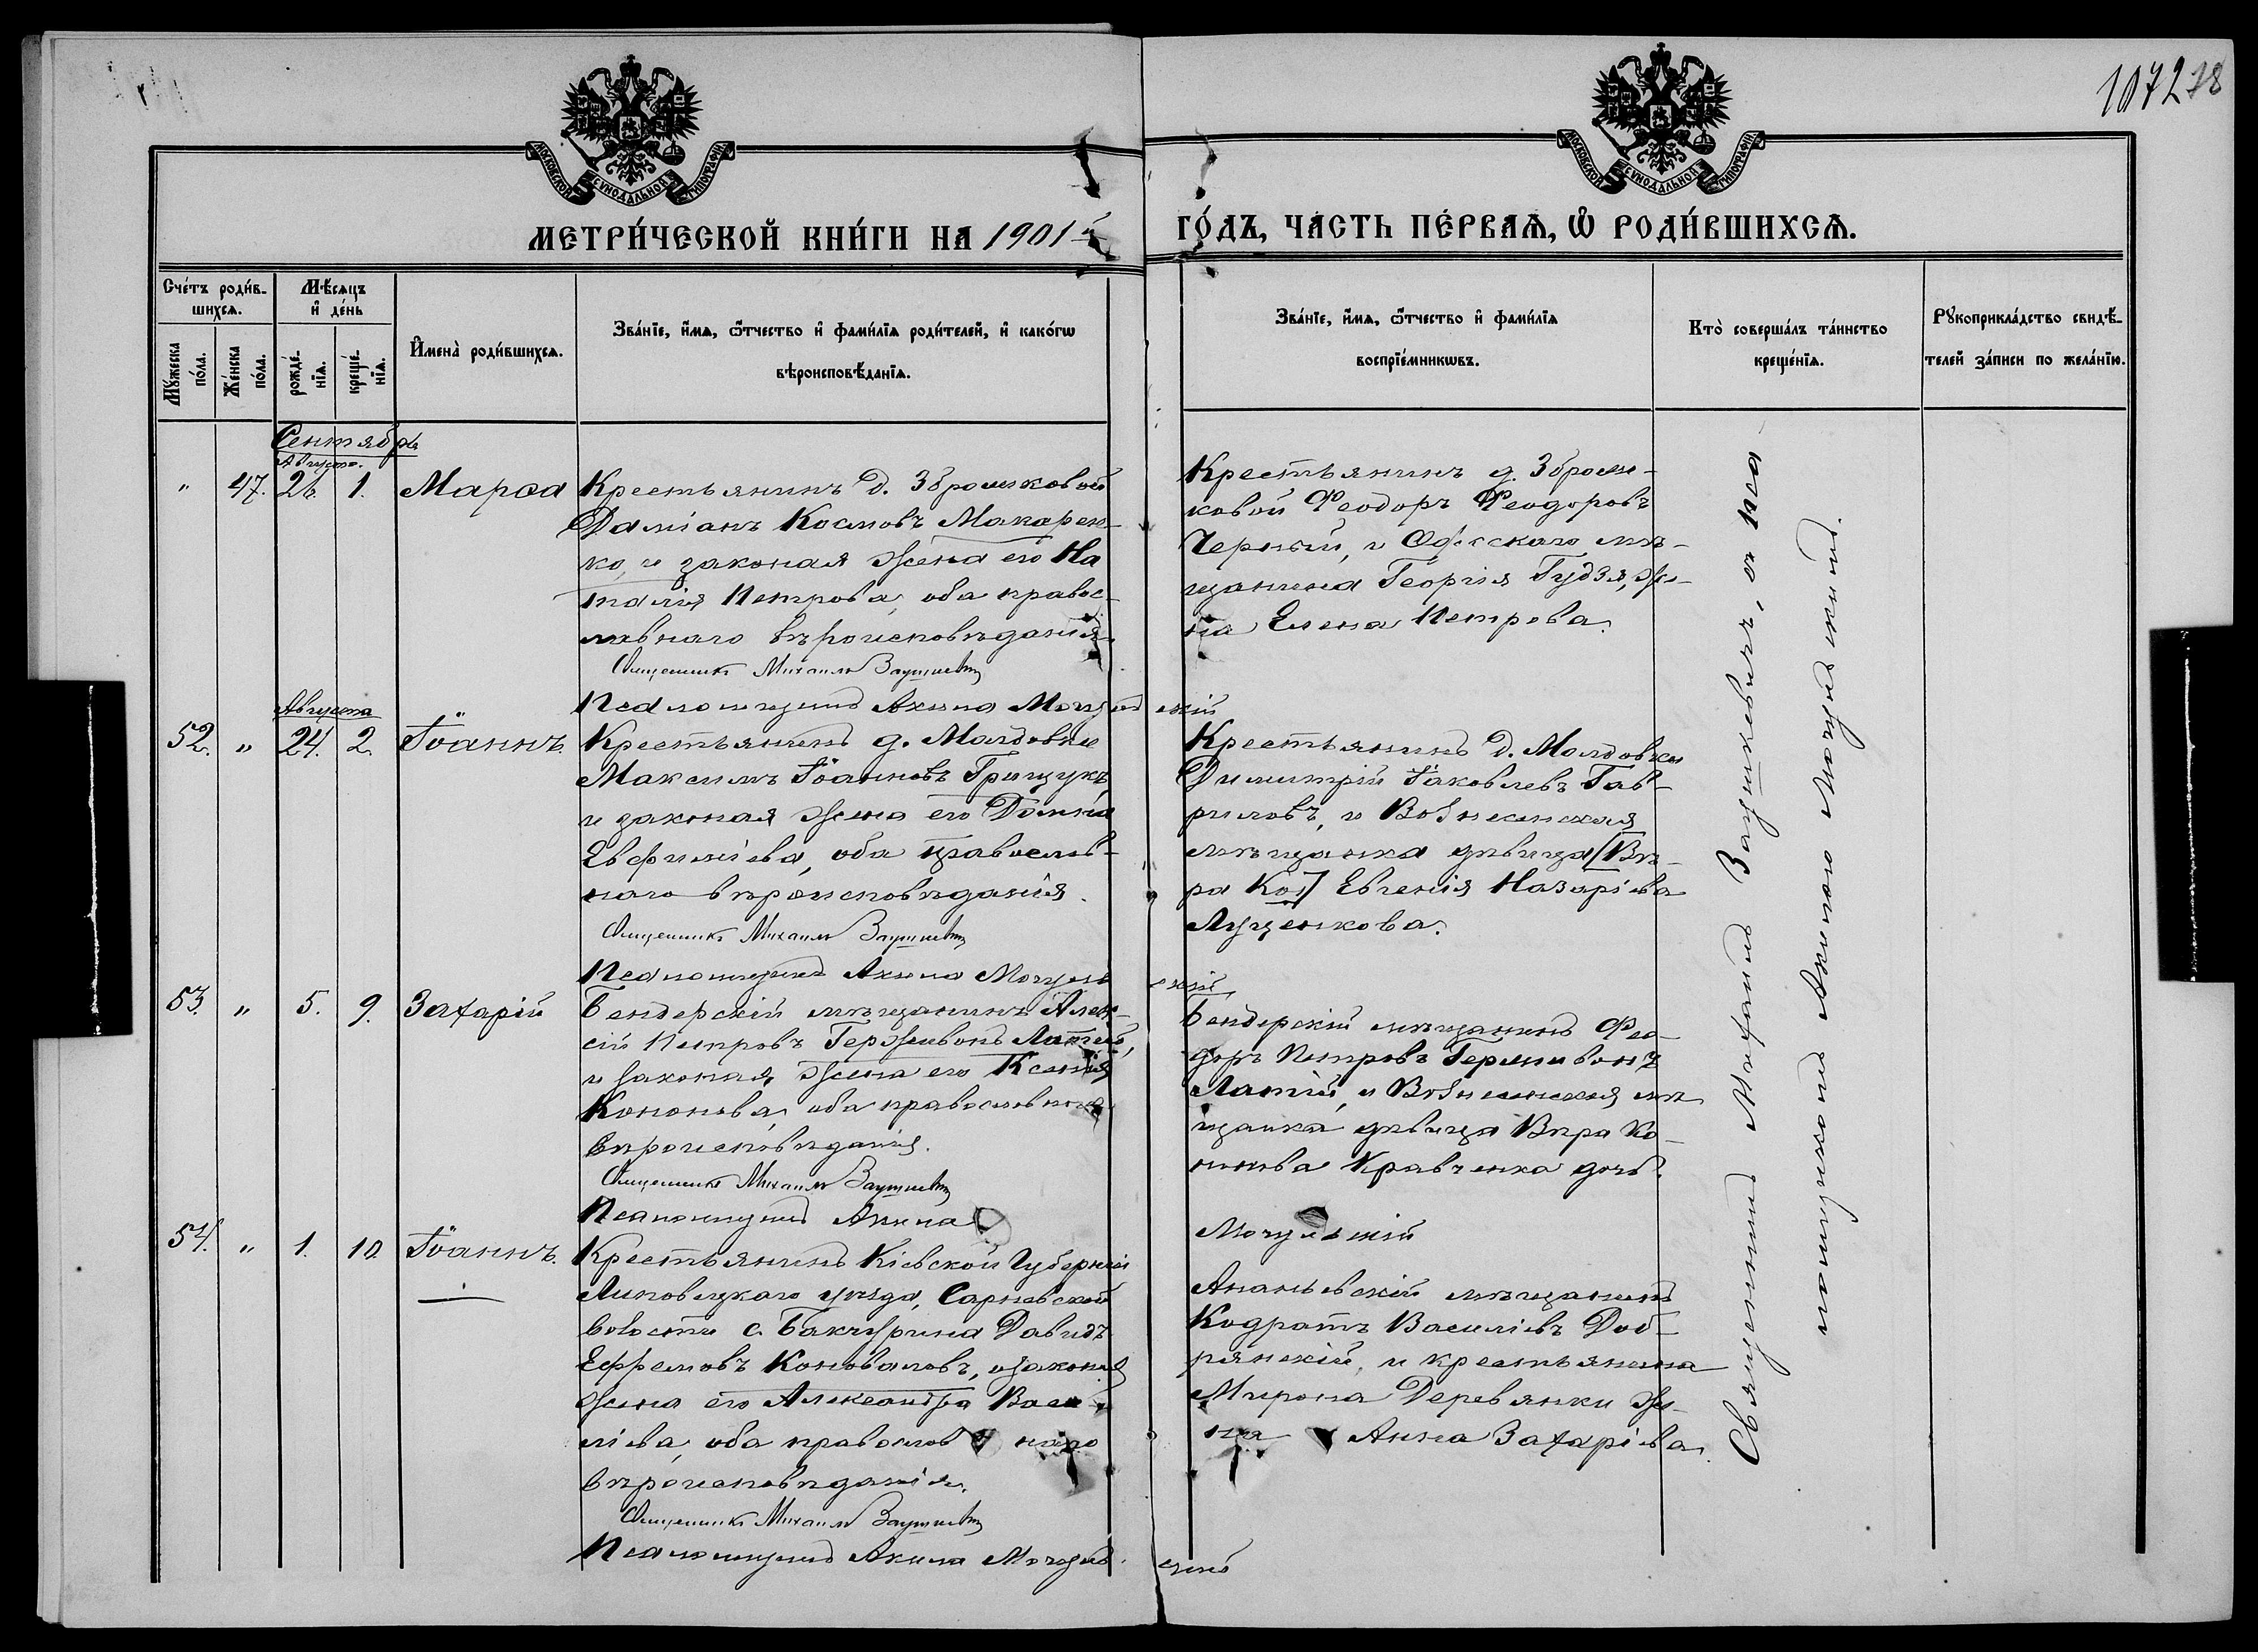 107278
МОСКОВСКОЙ СѴНОДАЛЬНОЙ ТИПОГРАФІИ
МОСКОВСКОЙ СѴНОДАЛЬНОЙ ТИПОГРАФІИ
МЕТРИ́ЧЕСКОЙ КНИ́ГИ НА 1901й ГО́ДЪ, ЧА́СТЬ ПЕ́РВАѦ, Ѽ РОДИ́ВШИХСѦ.
Сче́тъ роди́в-
шихсѧ.
Мꙋ́жеска
по́ла.
Же́нска
по́ла.
Мѣ́сѧцъ
и҆ де́нь
рожде́-
нїѧ.
креще́-
нїѧ.
И҆мена̀ роди́вшихсѧ.
Зва́нїе, и҆́мѧ, ѻ҆́тчество и҆ фами́лїѧ роди́телей, и҆ како́гѡ
вѣроисповѣ́данїѧ.
Зва́нїе, и҆́мѧ, ѻ҆́тчество и҆ фами́лїѧ
воспрїе́мникѡвъ.
Кто̀ соверша́лъ та́инство
креще́нїѧ.
Рꙋкоприкла́дство свидѣ́-
телей за́писи по жела́нїю.
Сентябрь
Августа.
" 47. 26. 1. Марѳа
Крестьянинъ д. Зброшковой
Даміанъ Космовъ Макарен-
ко, и законая жена его На
талія Петрова, оба правос-
лавнаго вѣроисповѣданія.
Священникъ Михаилъ Заушкевичъ
Псаломщикъ Акила Мочульскій
Крестьянинъ д. Зброш-
ковой Феодоръ Феодоровъ
Черный, и Одесскаго мѣ-
щанина Георгія Гудзя, же-
на Елена Петрова.
Августа
52. " 24. 2. Іоаннъ.
Крестьянинъ д. Молдовки
Максимъ Іоанновъ Грищукъ,
и законая жена его Домна
Евфиміева, оба православ-
наго вѣроисповѣданія.
Священникъ Михаилъ Заушкевичъ
Псаломщикъ Акила Мочульскій
Крестьянинъ д. Молдовки
Димитрій Іаковлевъ Гав-
риловъ, и Вознесенская
мѣщанка дѣвица [Вѣ-
ра Ко] Евгенія Назаріева
Луценкова.
53. " 5. 9. Захарій
Бендерскій мѣщанинъ Алек-
сій Петровъ Герживонъ Латій,
и законая жена его Ксенія
Кононова, оба православнаго
вѣроисповѣданія.
Священникъ Михаилъ Заушкевичъ
Псаломщикъ Акила Мочульскій
Бендерскій мѣщанинъ Фео-
доръ Петровъ Герживонъ
Латій, и Вознесенская мѣ
щанка дѣвица Вѣра Ко-
нонова Кравченка дочь.
54. " 1. 10. Іоаннъ.
Крестьянинъ Кіевской Губерніи
Липовецкаго уѣзда, Сарневской
волости с. Бакчурина Давидъ
Ефремовъ Коноваловъ, и законая
жена его Александра Васи-
ліева, оба православнаго
вѣроисповѣданія.
Священникъ Михаилъ Заушкевичъ
Псаломщикъ Акила Мочульскій
Ананьевскій мѣщанинъ
Кодратъ Василіевъ Доб-
рянскій, и крестьянина
Мирона Деревянки же-
на Анна Захаріева.
Священникъ Михаилъ Заушкевичъ, съ пса-
ломщикомъ Акилою Мочульскимъ.